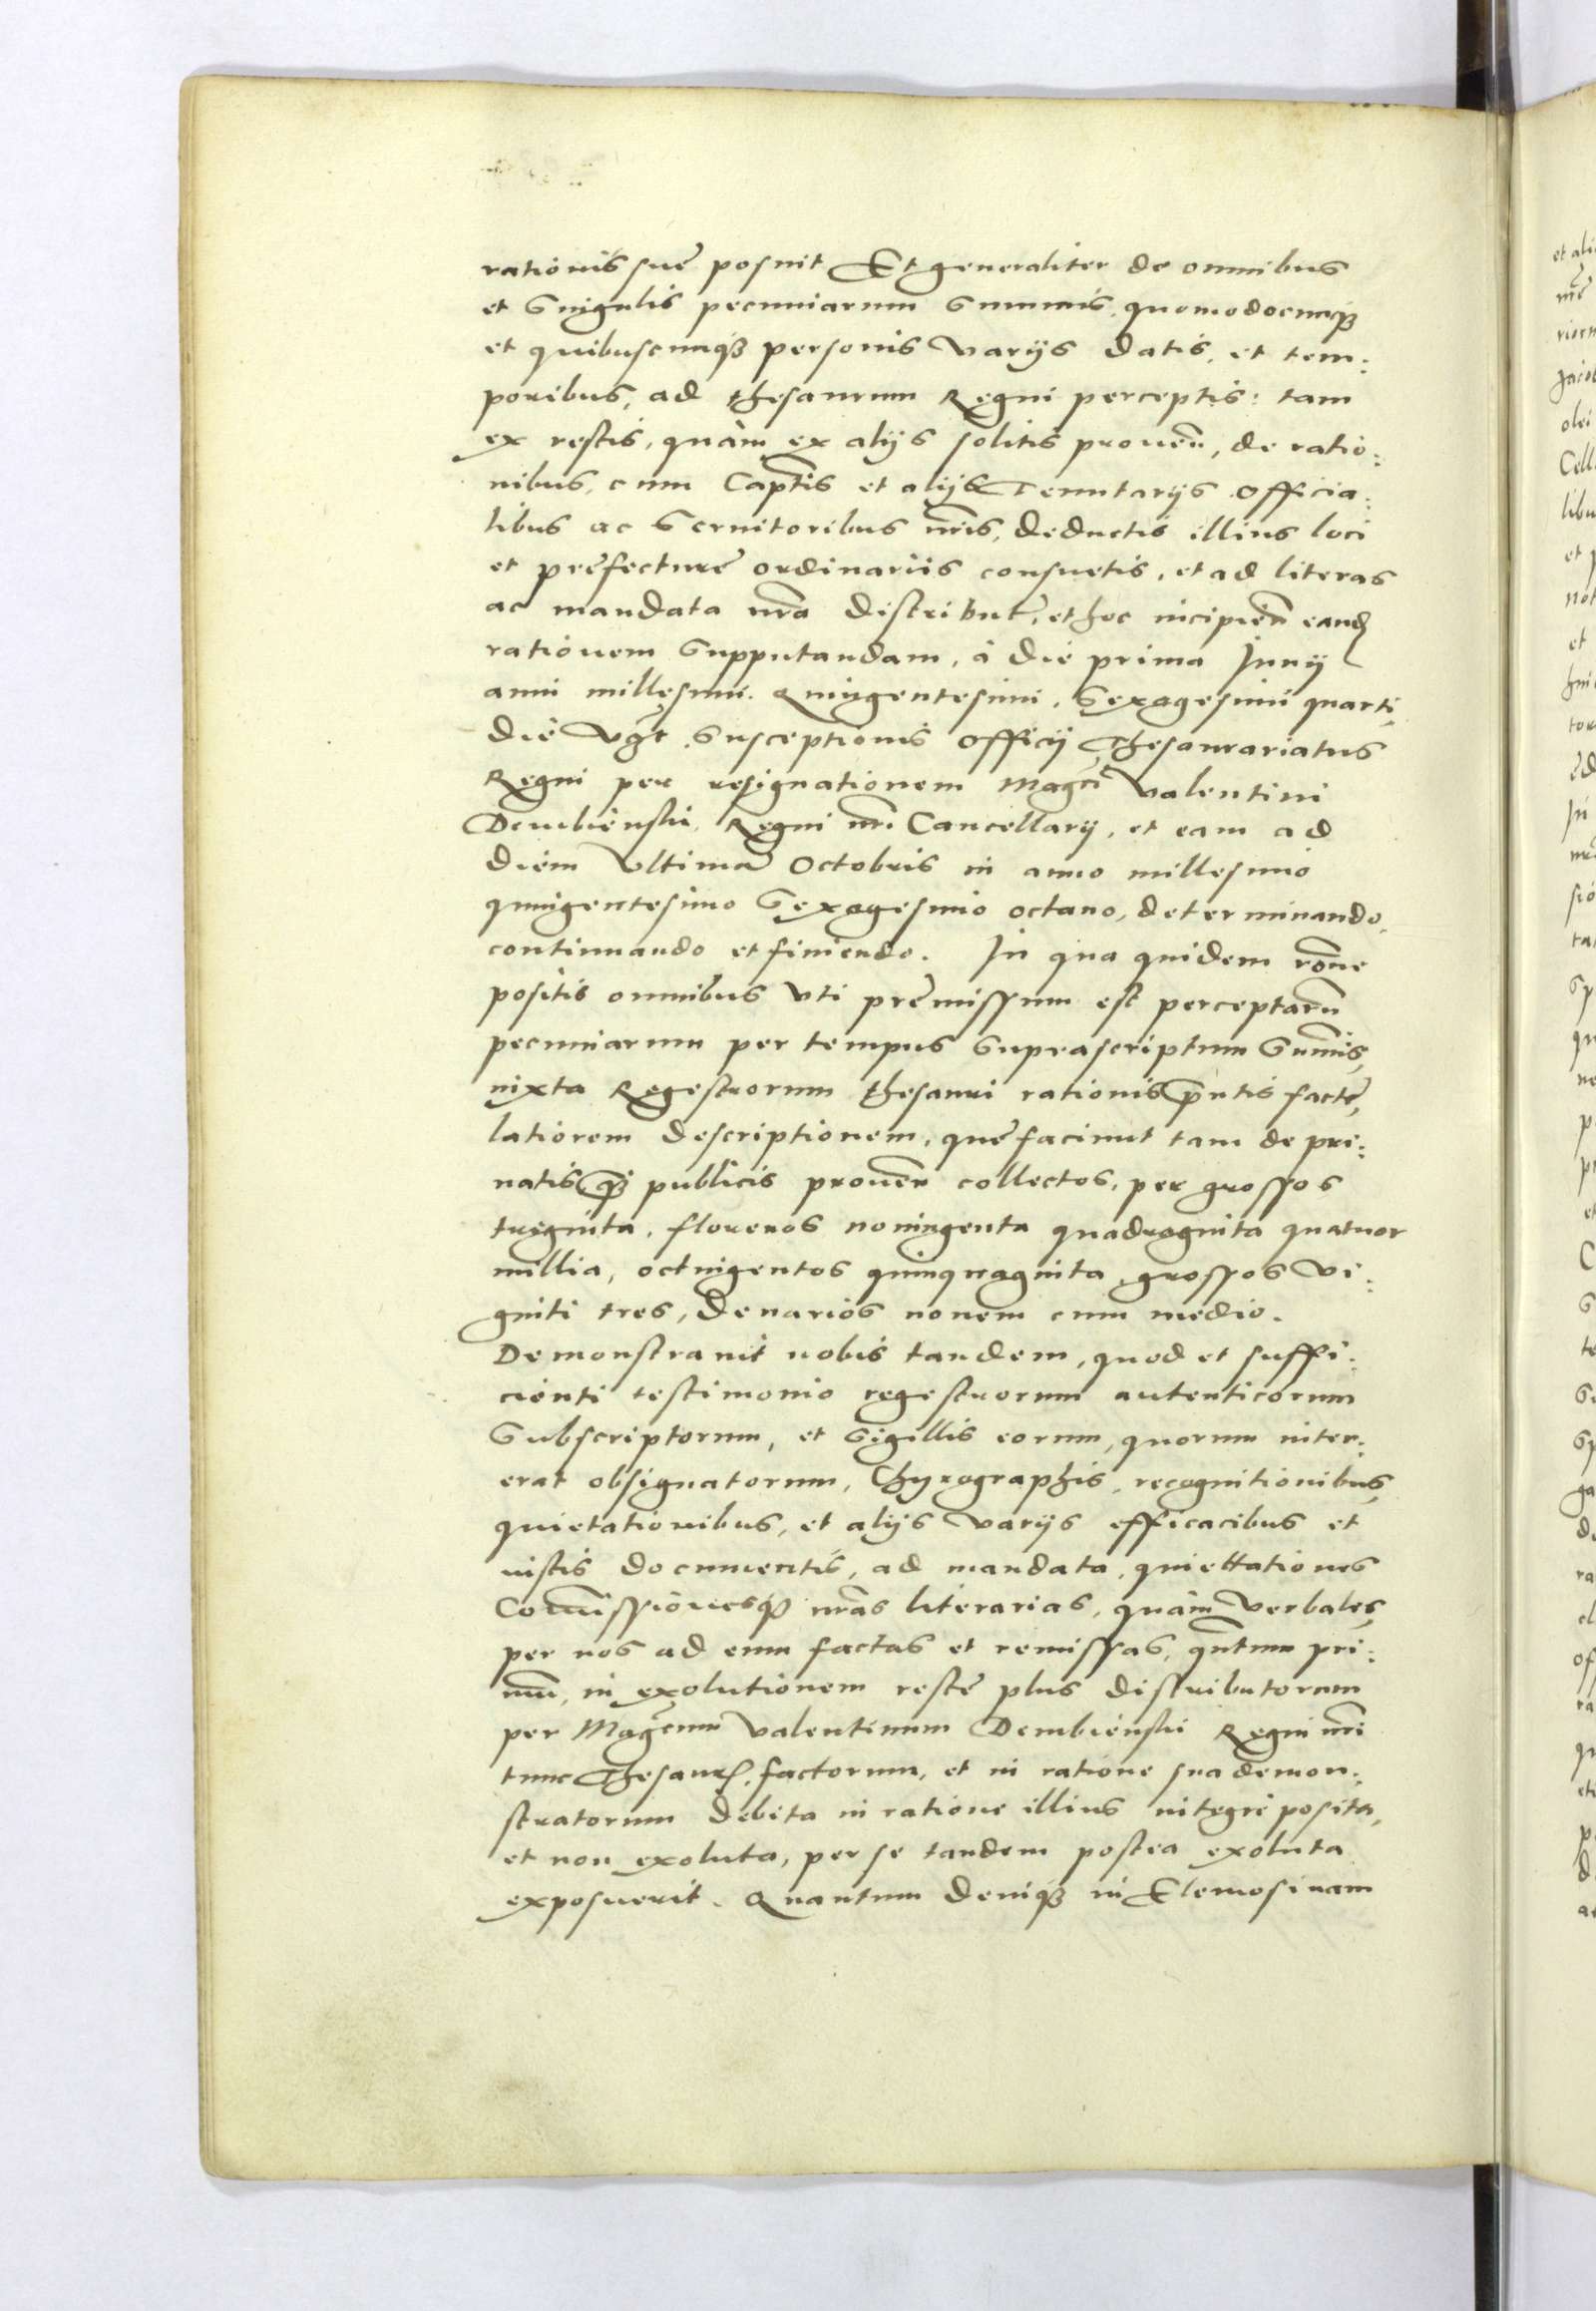 rationis suę posuit Et generaliter de omnibus
et Singulis pecuniarum Summis, quomodocunqȝ
et quibuscunqȝ personis Varijs datis, et tem:
poribus, ad thesaurum Regni perceptis: tam
ex restis, quàm ex alijs solitis prouen̄, de ratio:
nibus, cum Capt̄is et alijs Tenutarijs officia:
libus ac Seruitoribus nr̄is, deductis illius loci
et pręfecturę ordinariis consuetis, et ad literas
ac mandata nr̄a distribut̄, et hoc incipień eand
rationem Supputandam, à die prima Junij
anni millesimi. Quingentesimi, Sexagesimi quarti,
die vǵr Susceptionis officij Thesaurariatus
Regni per resignationem Magc̄i Valentini
Dembienski, Regni nr̄i Cancellarij, et eam ad
diem Vltima Octobris in anno millesimo
quingentesimo Sexagesimo octauo, determinando,
continuando et finiendo. In qua quidem rōne
positis omnibus Vti pręmissum est perceptarū
pecuniarum per tempus Suprascriptum Sum̄is,
iuxta Regestrorum thesauri rationis p̄ntis factę,
latiorem descriptionem, quę faciunt tam de pri:
uatis q̄ȝ publicis prouen̄ collectos, per grossos
triginta, florenos noningenta quadraginta quatuor
millia, octuigentos quinquaginta, grossos Vi:
ginti tres, denarios nouem cum medio.
Demonstrauit nobis tandem, quod et suffi:
cienti testimonio regestrorum autenticorum
Subscriptorum, et Sigillis eorum, quorum inter:
erat obsignatorum, Chyrographis, recognitionibus,
quietationibus, et alijs varijs efficacibus et
iustis documentis, ad mandata, quiettationes
Com̄issionesqȝ nr̄as literarias, quàm Verbales,
per nos ad eum factas et remissas, qn̄tum pri:
mū, in exolutionem restę plus distributorum
per Magc̄um Valentinum Dembienski Regni nr̄i
tunc Thesaur, factorum, et in ratione sua demon:
stratorum debita in ratione illius integrè posita,
et non exoluta, per se tandem postea exoluta
exposuerit. Quantum deniqȝ in Elemosinam